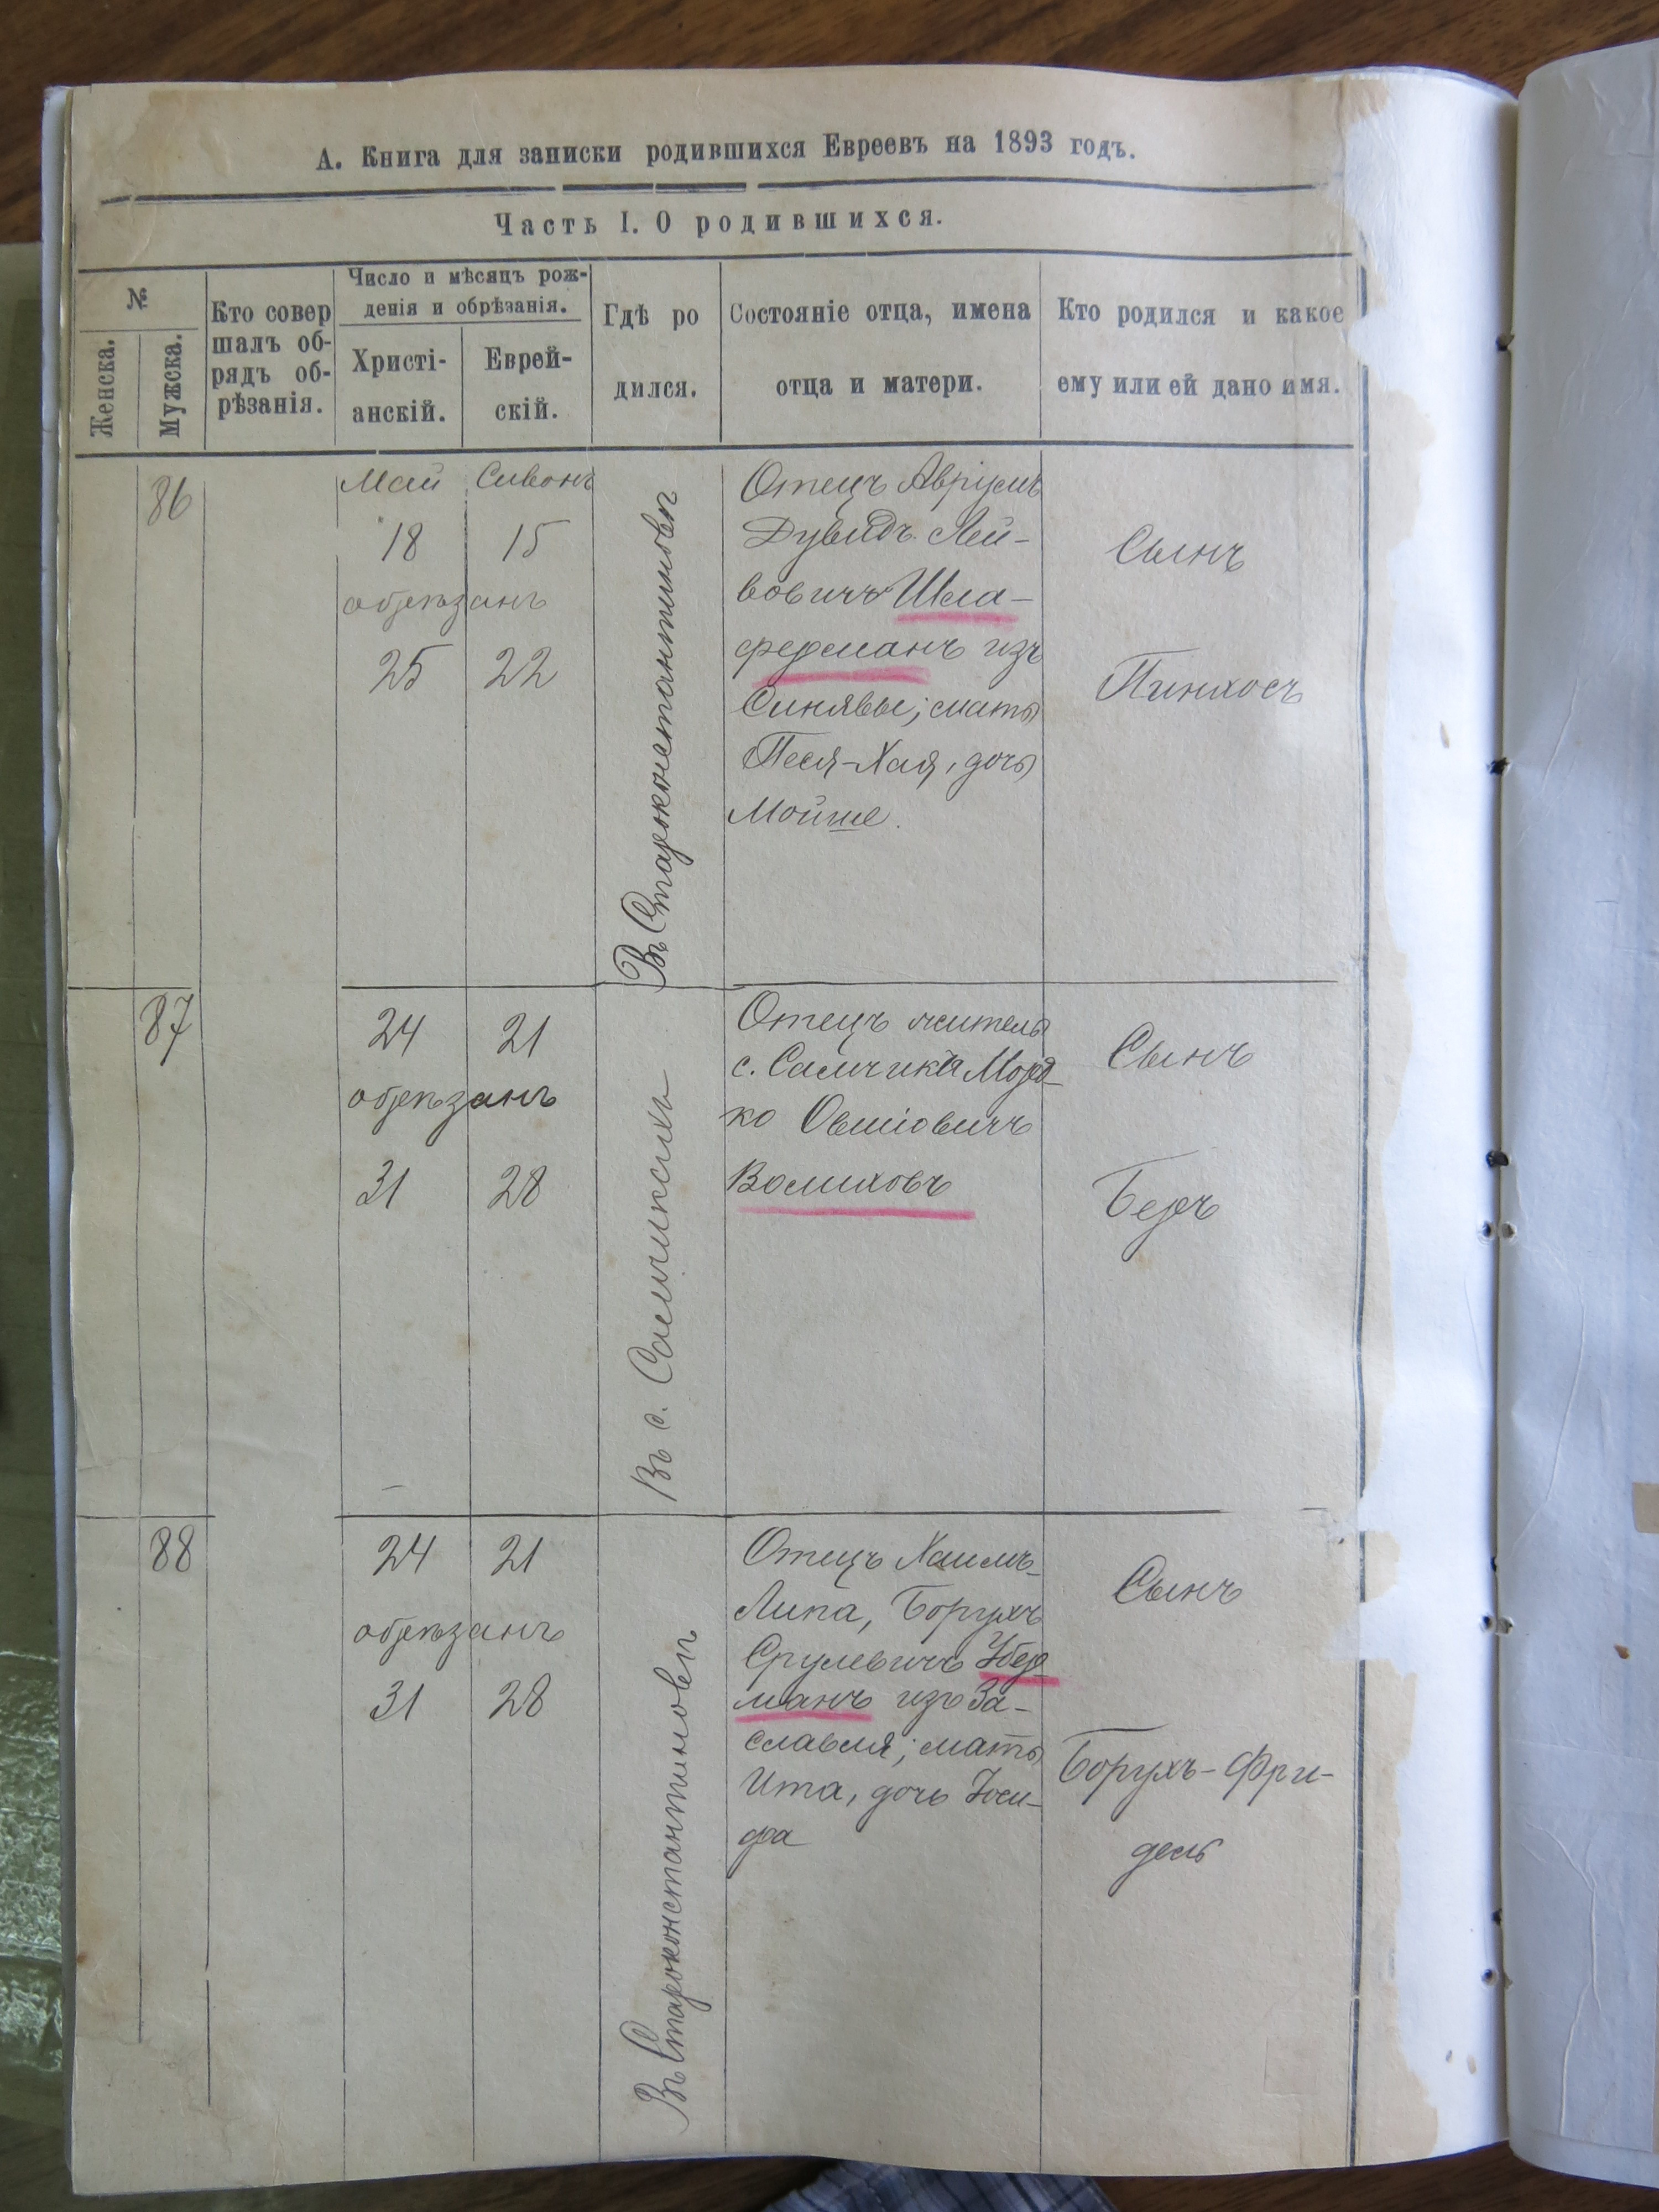 А. Книга для записки родившихся Евреевъ на 1893 годъ.
Часть I. О родившихся.
№
Женска.
Мужска.
Кто совер
шалъ об-
рядъ об-
рѣзанія.
Число и мѣсяцъ рож-
денія и обрѣзанія.
Христі-
анскій.
Еврей-
скій.
Гдѣ ро
дился.
Состояніе отца, имена
отца и матери.
Кто родился и какое
ему или ей дано имя.
86
Май Сивонъ
18 15
обрѣзанъ
25 22
Въ Староконстантиновѣ
Отецъ Аврумъ
Дувидъ Лей-
вовичъ Шла-
ферманъ изъ
Синявы; мать
Песя-Хая, дочь
Мойше.
Сынъ
Пинхосъ
87
24 21
обрѣзанъ
31 28
Въ с. Самчикахъ
Отецъ житель
с. Самчика Морд-
ко Овшіовичъ
Сынъ
Беръ
88
24 21
обрѣзанъ
31 28
Въ Староконстантиновѣ
Отецъ Хаимъ-
Липа, Борухъ
Срулевичъ
манъ изъ За-
славля; мать
Ита, дочь Іоси-
фа
Сынъ
Борухъ-Фри-
дель